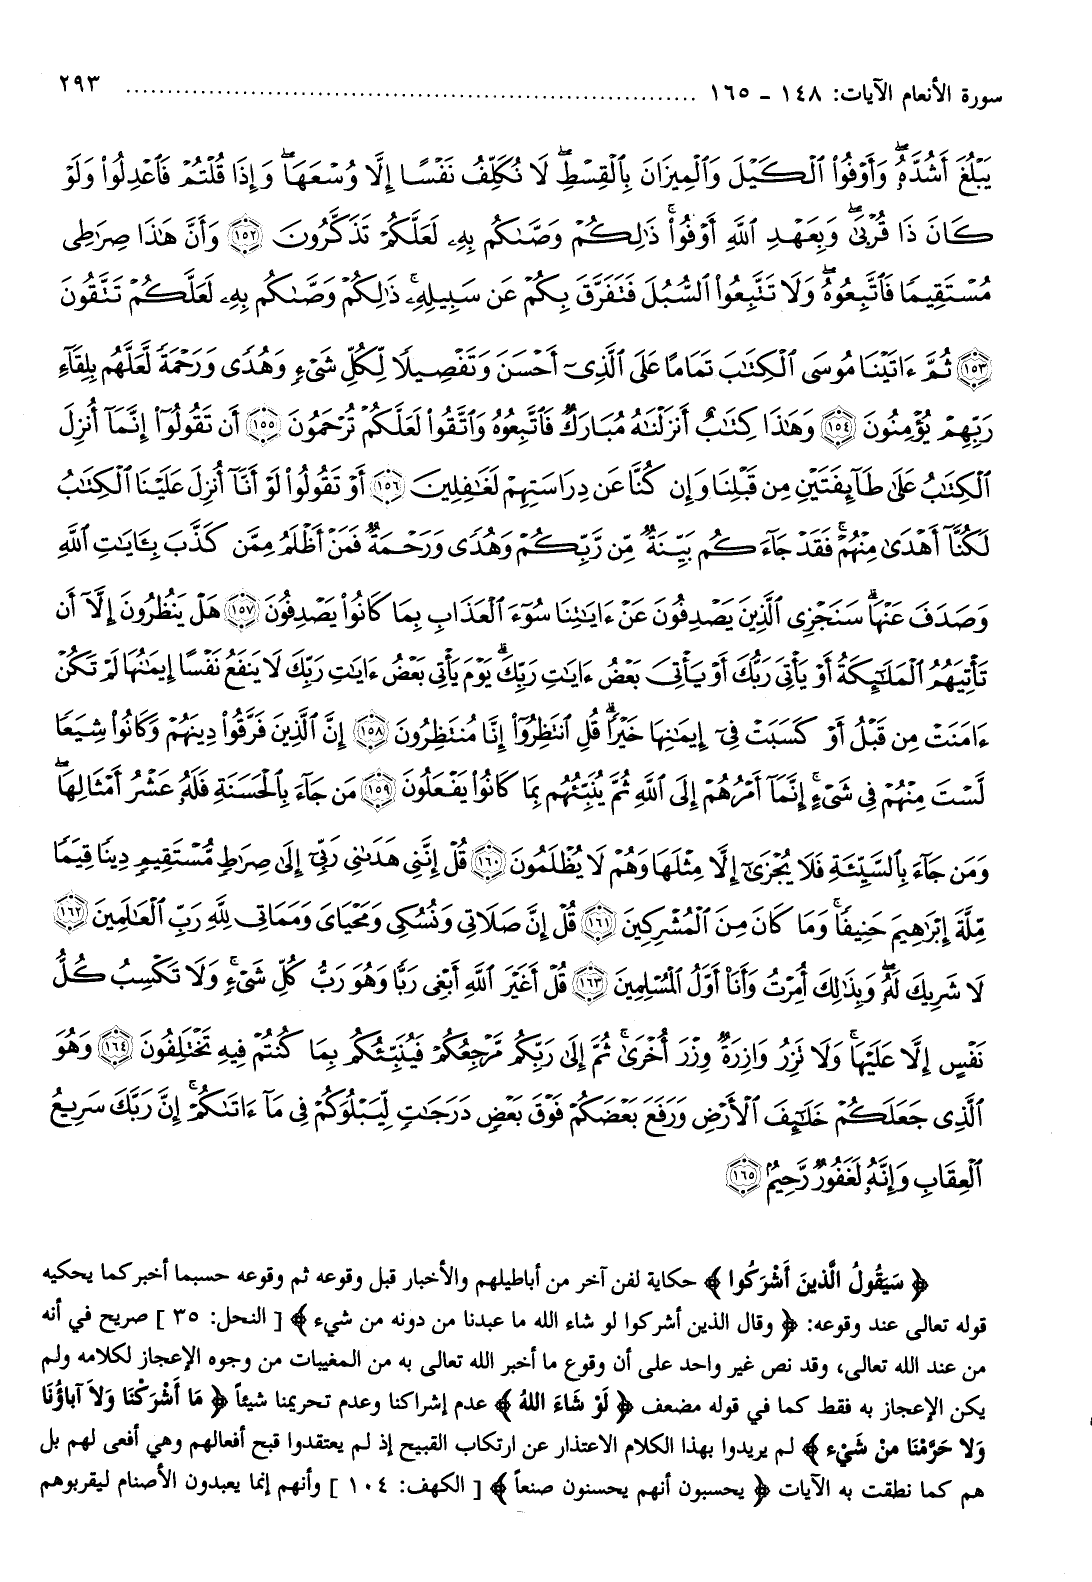 سورة الأنعام الآيات: ١٤٨ - ١٦٥ ........................................................................ ٢٩٣
يَبْلُغَ أَشُدَّهُۥۖ وَأَوْفُوا۟ ٱلْكَيْلَ وَٱلْمِيزَانَ بِٱلْقِسْطِۖ لَا نُكَلِّفُ نَفْسًا إِلَّا وُسْعَهَاۖ وَإِذَا قُلْتُمْ فَٱعْدِلُوا۟ وَلَوْ
كَانَ ذَا قُرْبَىٰۖ وَبِعَهْدِ ٱللَّهِ أَوْفُوا۟ۚ ذَٰلِكُمْ وَصَّىٰكُم بِهِۦ لَعَلَّكُمْ تَذَكَّرُونَ ﴿١٥٢﴾ وَأَنَّ هَٰذَا صِرَٰطِى
مُسْتَقِيمًا فَٱتَّبِعُوهُۖ وَلَا تَتَّبِعُوا۟ ٱلسُّبُلَ فَتَفَرَّقَ بِكُمْ عَن سَبِيلِهِۦۚ ذَٰلِكُمْ وَصَّىٰكُم بِهِۦ لَعَلَّكُمْ تَتَّقُونَ
﴿١٥٣﴾ ثُمَّ ءَاتَيْنَا مُوسَى ٱلْكِتَٰبَ تَمَامًا عَلَى ٱلَّذِىٓ أَحْسَنَ وَتَفْصِيلًا لِّكُلِّ شَىْءٍ وَهُدًى وَرَحْمَةً لَّعَلَّهُم بِلِقَآءِ
رَبِّهِمْ يُؤْمِنُونَ ﴿١٥٤﴾ وَهَٰذَا كِتَٰبٌ أَنزَلْنَٰهُ مُبَارَكٌ فَٱتَّبِعُوهُ وَٱتَّقُوا۟ لَعَلَّكُمْ تُرْحَمُونَ ﴿١٥٥﴾ أَن تَقُولُوٓا۟ إِنَّمَآ أُنزِلَ
ٱلْكِتَٰبُ عَلَىٰ طَآئِفَتَيْنِ مِن قَبْلِنَا وَإِن كُنَّا عَن دِرَاسَتِهِمْ لَغَٰفِلِينَ ﴿١٥٦﴾ أَوْ تَقُولُوا۟ لَوْ أَنَّآ أُنزِلَ عَلَيْنَا ٱلْكِتَٰبُ
لَكُنَّآ أَهْدَىٰ مِنْهُمْۚ فَقَدْ جَآءَكُم بَيِّنَةٌ مِّن رَّبِّكُمْ وَهُدًى وَرَحْمَةٌۚ فَمَنْ أَظْلَمُ مِمَّن كَذَّبَ بِـَٔايَٰتِ ٱللَّهِ
وَصَدَفَ عَنْهَاۗ سَنَجْزِى ٱلَّذِينَ يَصْدِفُونَ عَنْ ءَايَٰتِنَا سُوٓءَ ٱلْعَذَابِ بِمَا كَانُوا۟ يَصْدِفُونَ ﴿١٥٧﴾ هَلْ يَنظُرُونَ إِلَّآ أَن
تَأْتِيَهُمُ ٱلْمَلَٰٓئِكَةُ أَوْ يَأْتِىَ رَبُّكَ أَوْ يَأْتِىَ بَعْضُ ءَايَٰتِ رَبِّكَۗ يَوْمَ يَأْتِى بَعْضُ ءَايَٰتِ رَبِّكَ لَا يَنفَعُ نَفْسًا إِيمَٰنُهَا لَمْ تَكُنْ
ءَامَنَتْ مِن قَبْلُ أَوْ كَسَبَتْ فِىٓ إِيمَٰنِهَا خَيْرًاۗ قُلِ ٱنتَظِرُوٓا۟ إِنَّا مُنتَظِرُونَ ﴿١٥٨﴾ إِنَّ ٱلَّذِينَ فَرَّقُوا۟ دِينَهُمْ وَكَانُوا۟ شِيَعًا
لَّسْتَ مِنْهُمْ فِى شَىْءٍۚ إِنَّمَآ أَمْرُهُمْ إِلَى ٱللَّهِ ثُمَّ يُنَبِّئُهُم بِمَا كَانُوا۟ يَفْعَلُونَ ﴿١٥٩﴾ مَن جَآءَ بِٱلْحَسَنَةِ فَلَهُۥ عَشْرُ أَمْثَالِهَاۖ
وَمَن جَآءَ بِٱلسَّيِّئَةِ فَلَا يُجْزَىٰٓ إِلَّا مِثْلَهَا وَهُمْ لَا يُظْلَمُونَ ﴿١٦٠﴾ قُلْ إِنَّنِى هَدَىٰنِى رَبِّىٓ إِلَىٰ صِرَٰطٍ مُّسْتَقِيمٍ دِينًا قِيَمًا
مِّلَّةَ إِبْرَٰهِيمَ حَنِيفًاۚ وَمَا كَانَ مِنَ ٱلْمُشْرِكِينَ ﴿١٦١﴾ قُلْ إِنَّ صَلَاتِى وَنُسُكِى وَمَحْيَاىَ وَمَمَاتِى لِلَّهِ رَبِّ ٱلْعَٰلَمِينَ ﴿١٦٢﴾
لَا شَرِيكَ لَهُۥۖ وَبِذَٰلِكَ أُمِرْتُ وَأَنَا۠ أَوَّلُ ٱلْمُسْلِمِينَ ﴿١٦٣﴾ قُلْ أَغَيْرَ ٱللَّهِ أَبْغِى رَبًّا وَهُوَ رَبُّ كُلِّ شَىْءٍۚ وَلَا تَكْسِبُ كُلُّ
نَفْسٍ إِلَّا عَلَيْهَاۚ وَلَا تَزِرُ وَازِرَةٌ وِزْرَ أُخْرَىٰۚ ثُمَّ إِلَىٰ رَبِّكُم مَّرْجِعُكُمْ فَيُنَبِّئُكُم بِمَا كُنتُمْ فِيهِ تَخْتَلِفُونَ ﴿١٦٤﴾ وَهُوَ
ٱلَّذِى جَعَلَكُمْ خَلَٰٓئِفَ ٱلْأَرْضِ وَرَفَعَ بَعْضَكُمْ فَوْقَ بَعْضٍ دَرَجَٰتٍ لِّيَبْلُوَكُمْ فِى مَآ ءَاتَىٰكُمْۗ إِنَّ رَبَّكَ سَرِيعُ
ٱلْعِقَابِ وَإِنَّهُۥ لَغَفُورٌ رَّحِيمٌ ﴿١٦٥﴾
﴿ سَيَقُولُ الَّذينَ أَشْرَكُوا ﴾ حكاية لفن آخر من أباطيلهم والأخبار قبل وقوعه ثم وقوعه حسبما أخبر كما يحكيه
قوله تعالى عند وقوعه: ﴿ وقال الذين أشركوا لو شاء الله ما عبدنا من دونه من شيء ﴾ [ النحل: ٣٥ ] صريح في أنه
من عند الله تعالى، وقد نص غير واحد على أن وقوع ما أخبر الله تعالى به من المغيبات من وجوه الإعجاز لكلامه ولم
يكن الإعجاز به فقط كما في قوله مضعف ﴿ لَوْ شَاءَ اللهُ ﴾ عدم إشراكنا وعدم تحريمنا شيئاً ﴿ مَا أَشْرَكْنَا وَلاَ آباؤُنَا
وَلا حَرَّمْنَا منْ شَيْء ﴾ لم يريدوا بهذا الكلام الاعتذار عن ارتكاب القبيح إذ لم يعتقدوا قبح أفعالهم وهي أفعى لهم بل
هم كما نطقت به الآيات ﴿ يحسبون أنهم يحسنون صنعاً ﴾ [ الكهف: ١٠٤ ] وأنهم إنما يعبدون الأصنام ليقربوهم